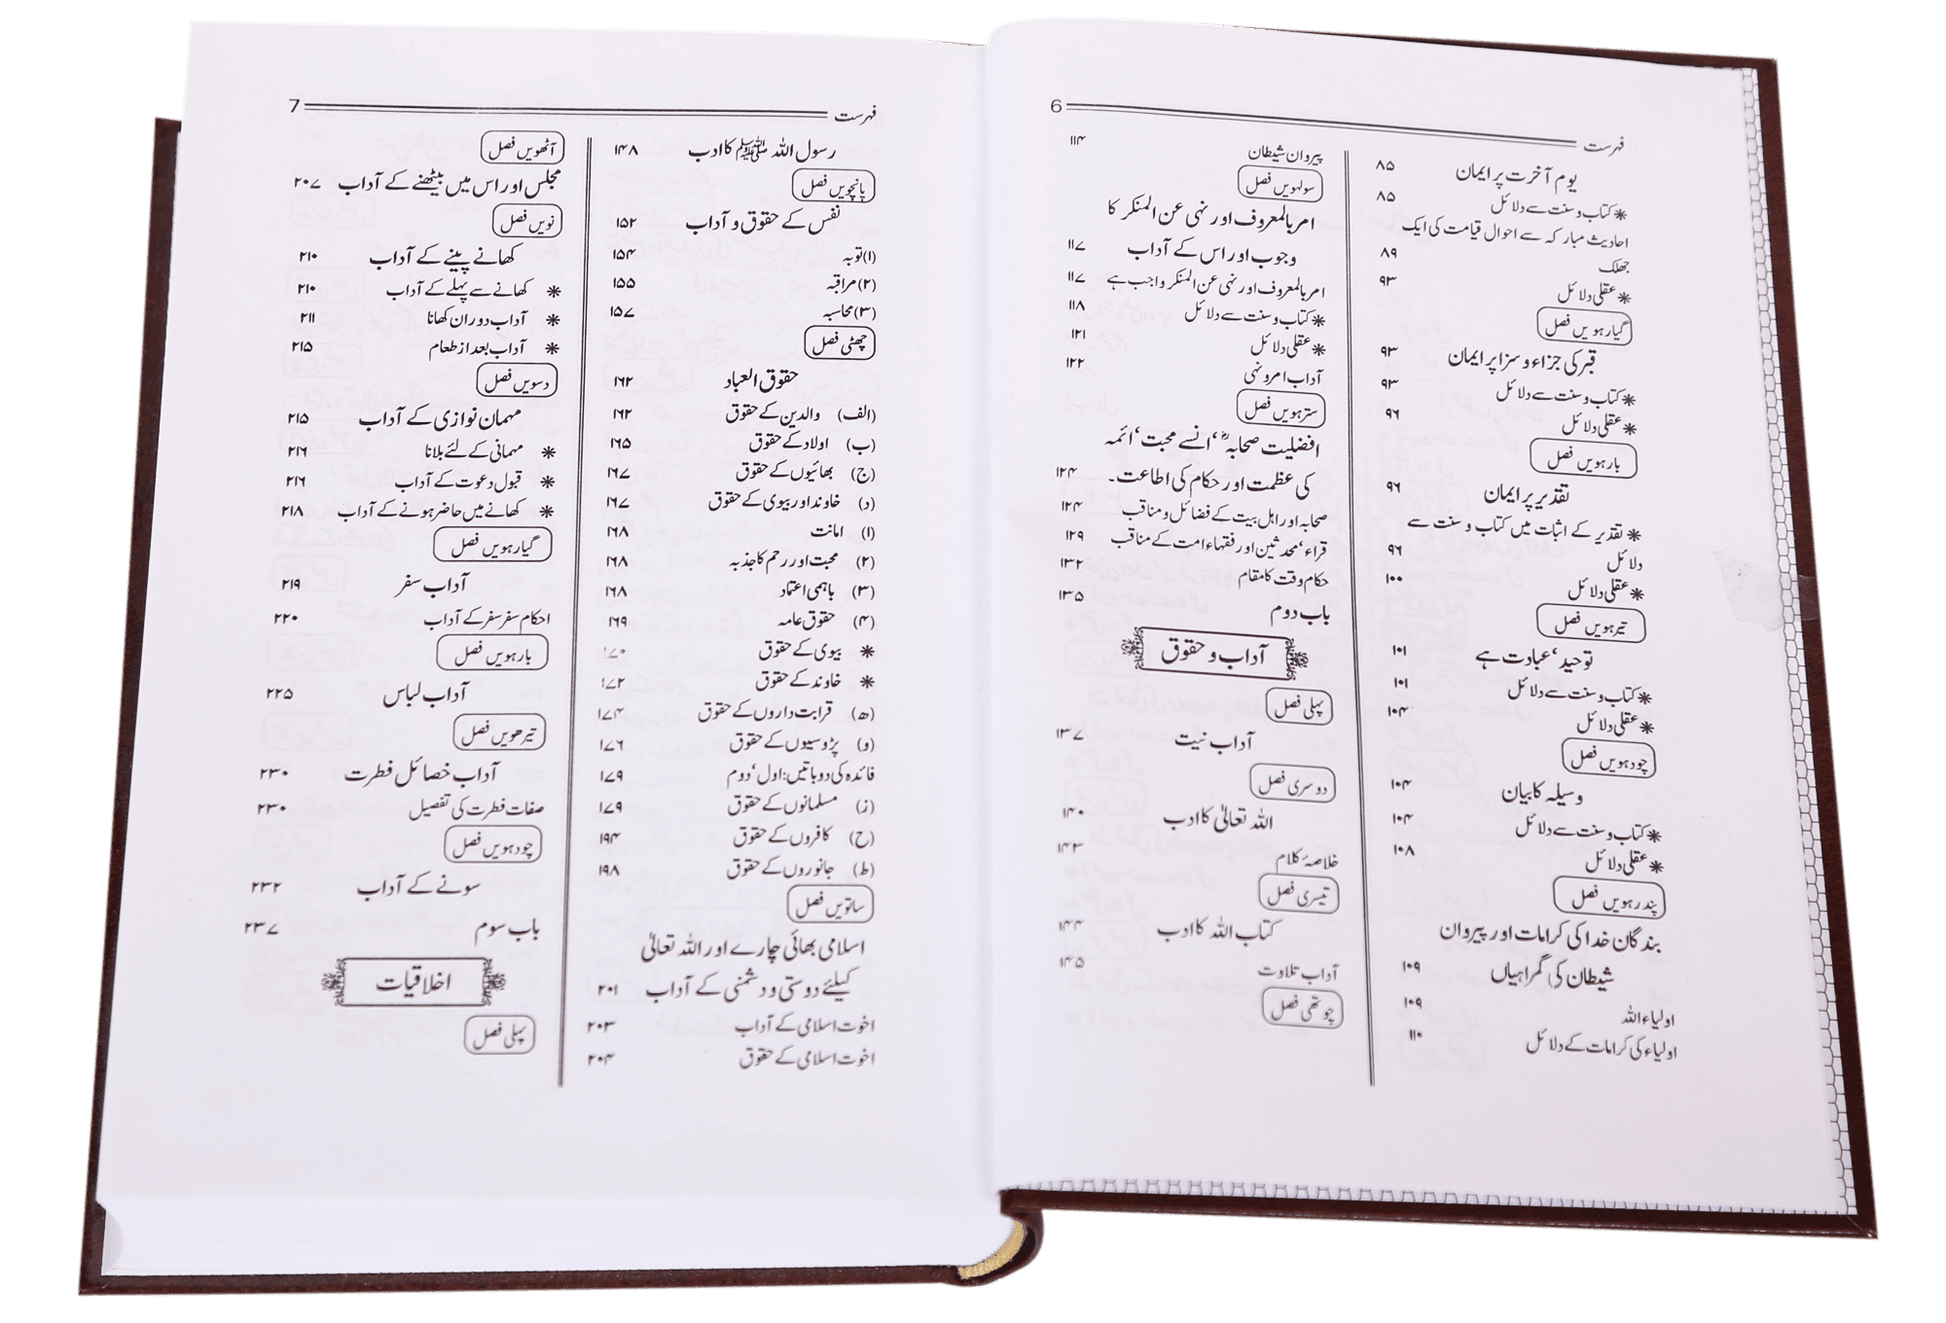 فہرست 6
یوم آخرت پر ایمان ۸۵
* کتاب و سنت سے دلائل ۸۵
احادیث مبارکہ سے احوال قیامت کی ایک
جھلک ۸۹
* عقلی دلائل ۹۳
گیارہویں فصل
قبر کی جزاء و سزا پر ایمان ۹۳
* کتاب و سنت سے دلائل ۹۳
* عقلی دلائل ۹۶
بارہویں فصل
تقدیر پر ایمان ۹۶
* تقدیر کے اثبات میں کتاب و سنت سے
دلائل ۹۶
* عقلی دلائل ۱۰۰
تیرہویں فصل
توحید، عبادت ہے ۱۰۱
* کتاب و سنت سے دلائل ۱۰۱
* عقلی دلائل ۱۰۴
چودہویں فصل
وسیلہ کا بیان ۱۰۴
* کتاب و سنت سے دلائل ۱۰۴
* عقلی دلائل ۱۰۸
پندرہویں فصل
بندگان خدا کی کرامات اور پیروان
شیطان کی گمراہیاں ۱۰۹
اولیاء اللہ ۱۰۹
اولیاء کی کرامات کے دلائل ۱۱۰
پیروان شیطان ۱۱۴
سولہویں فصل
امر بالمعروف اور نہی عن المنکر کا
وجوب اور اس کے آداب ۱۱۷
امر بالمعروف اور نہی عن المنکر واجب ہے ۱۱۷
* کتاب و سنت سے دلائل ۱۱۸
* عقلی دلائل ۱۲۱
آداب امر و نہی ۱۲۲
سترہویں فصل
افضلیت صحابہؓ، انسے محبت، ائمہ
کی عظمت اور حکام کی اطاعت۔ ۱۲۴
صحابہ اور اہل بیت کے فضائل و مناقب ۱۲۴
قراء، محدثین اور فقہاء امت کے مناقب ۱۲۹
حکام وقت کا مقام ۱۳۲
باب دوم ۱۳۵
آداب و حقوق
پہلی فصل
آداب نیت ۱۳۷
دوسری فصل
اللہ تعالیٰ کا ادب ۱۴۰
خلاصۂ کلام ۱۴۳
تیسری فصل
کتاب اللہ کا ادب ۱۴۴
آداب تلاوت ۱۴۵
چوتھی فصل
فہرست 7
رسول اللہ ﷺ کا ادب ۱۴۸
پانچویں فصل
نفس کے حقوق و آداب ۱۵۲
(۱) توبہ ۱۵۴
(۲) مراقبہ ۱۵۵
(۳) محاسبہ ۱۵۷
چھٹی فصل
حقوق العباد ۱۶۲
(الف) والدین کے حقوق ۱۶۲
(ب) اولاد کے حقوق ۱۶۵
(ج) بھائیوں کے حقوق ۱۶۷
(د) خاوند اور بیوی کے حقوق ۱۶۷
(۱) امانت ۱۶۸
(۲) محبت اور رحم کا جذبہ ۱۶۸
(۳) باہمی اعتماد ۱۶۸
(۴) حقوق عامہ ۱۶۹
* بیوی کے حقوق ۱۷۰
* خاوند کے حقوق ۱۷۲
(ھ) قرابت داروں کے حقوق ۱۷۴
(و) پڑوسیوں کے حقوق ۱۷۶
فائدہ کی دو باتیں: اول، دوم ۱۷۹
(ز) مسلمانوں کے حقوق ۱۷۹
(ح) کافروں کے حقوق ۱۹۴
(ط) جانوروں کے حقوق ۱۹۸
ساتویں فصل
اسلامی بھائی چارے اور اللہ تعالیٰ
کیلئے دوستی و دشمنی کے آداب ۲۰۱
اخوت اسلامی کے آداب ۲۰۳
اخوت اسلامی کے حقوق ۲۰۴
آٹھویں فصل
مجلس اور اس میں بیٹھنے کے آداب ۲۰۷
نویں فصل
کھانے پینے کے آداب ۲۱۰
* کھانے سے پہلے کے آداب ۲۱۰
* آداب دوران کھانا ۲۱۱
* آداب بعد از طعام ۲۱۵
دسویں فصل
مہمان نوازی کے آداب ۲۱۵
* مہمانی کے لئے بلانا ۲۱۶
* قبول دعوت کے آداب ۲۱۶
* کھانے میں حاضر ہونے کے آداب ۲۱۸
گیارہویں فصل
آداب سفر ۲۱۹
احکام سفر سفر کے آداب ۲۲۰
بارہویں فصل
آداب لباس ۲۲۵
تیرھویں فصل
آداب خصائل فطرت ۲۳۰
صفات فطرت کی تفصیل ۲۳۰
چودہویں فصل
سونے کے آداب ۲۳۲
باب سوم ۲۳۷
اخلاقیات
پہلی فصل